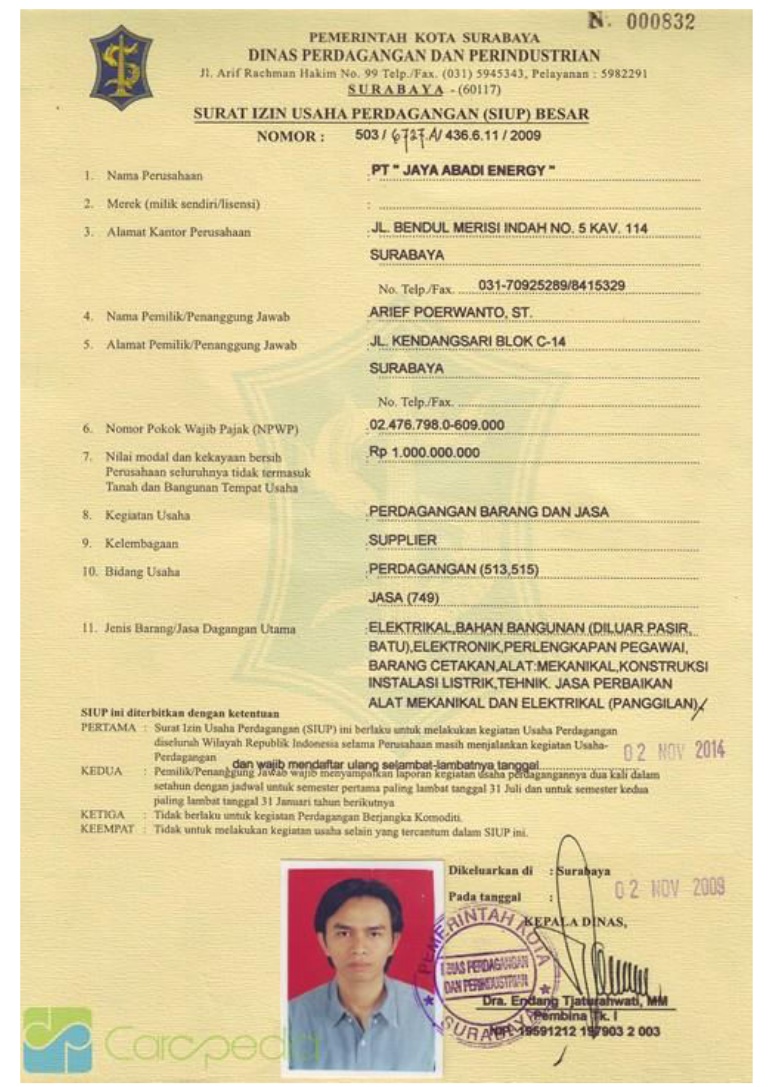 N. 000832
PEMERINTAH KOTA SURABAYA
DINAS PERDAGANGAN DAN PERINDUSTRIAN
Jl. Arif Rachman Hakim No. 99 Telp./Fax. (031) 5945343, Pelayanan : 5982291
SURABAYA - (60117)
SURAT IZIN USAHA PERDAGANGAN (SIUP) BESAR
NOMOR : 503 / 6727.A/ 436.6.11 / 2009
1. Nama Perusahaan : PT " JAYA ABADI ENERGY "
2. Merek (milik sendiri/lisensi) :
3. Alamat Kantor Perusahaan : JL. BENDUL MERISI INDAH NO. 5 KAV. 114
SURABAYA
No. Telp./Fax. 031-70925289/8415329
4. Nama Pemilik/Penanggung Jawab : ARIEF POERWANTO, ST.
5. Alamat Pemilik/Penanggung Jawab : JL. KENDANGSARI BLOK C-14
SURABAYA
No. Telp./Fax.
6. Nomor Pokok Wajib Pajak (NPWP) : 02.476.798.0-609.000
7. Nilai modal dan kekayaan bersih : Rp 1.000.000.000
Perusahaan seluruhnya tidak termasuk
Tanah dan Bangunan Tempat Usaha
8. Kegiatan Usaha : PERDAGANGAN BARANG DAN JASA
9. Kelembagaan : SUPPLIER
10. Bidang Usaha : PERDAGANGAN (513,515)
JASA (749)
11. Jenis Barang/Jasa Dagangan Utama : ELEKTRIKAL,BAHAN BANGUNAN (DILUAR PASIR,
BATU),ELEKTRONIK,PERLENGKAPAN PEGAWAI,
BARANG CETAKAN,ALAT:MEKANIKAL,KONSTRUKSI
INSTALASI LISTRIK,TEHNIK. JASA PERBAIKAN
ALAT MEKANIKAL DAN ELEKTRIKAL (PANGGILAN)
SIUP ini diterbitkan dengan ketentuan
PERTAMA : Surat Izin Usaha Perdagangan (SIUP) ini berlaku untuk melakukan kegiatan Usaha Perdagangan
diseluruh Wilayah Republik Indonesia selama Perusahaan masih menjalankan kegiatan Usaha-
Perdagangan dan wajib mendaftar ulang selambat-lambatnya tanggal 02 NOV 2014
KEDUA : Pemilik/Penanggung Jawab wajib menyampaikan laporan kegiatan usaha perdagangannya dua kali dalam
setahun dengan jadwal untuk semester pertama paling lambat tanggal 31 Juli dan untuk semester kedua
paling lambat tanggal 31 Januari tahun berikutnya
KETIGA : Tidak berlaku untuk kegiatan Perdagangan Berjangka Komoditi.
KEEMPAT : Tidak untuk melakukan kegiatan usaha selain yang tercantum dalam SIUP ini.
Dikeluarkan di : Surabaya
Pada tanggal : 02 NOV 2009
KEPALA DINAS,
PEMERINTAH KOTA
DINAS PERDAGANGAN
DAN PERINDUSTRIAN
SURABAYA
Dra. Endang Tjaturahwati, MM
Pembina Tk. I
NIP. 19591212 197903 2 003
Carapedia